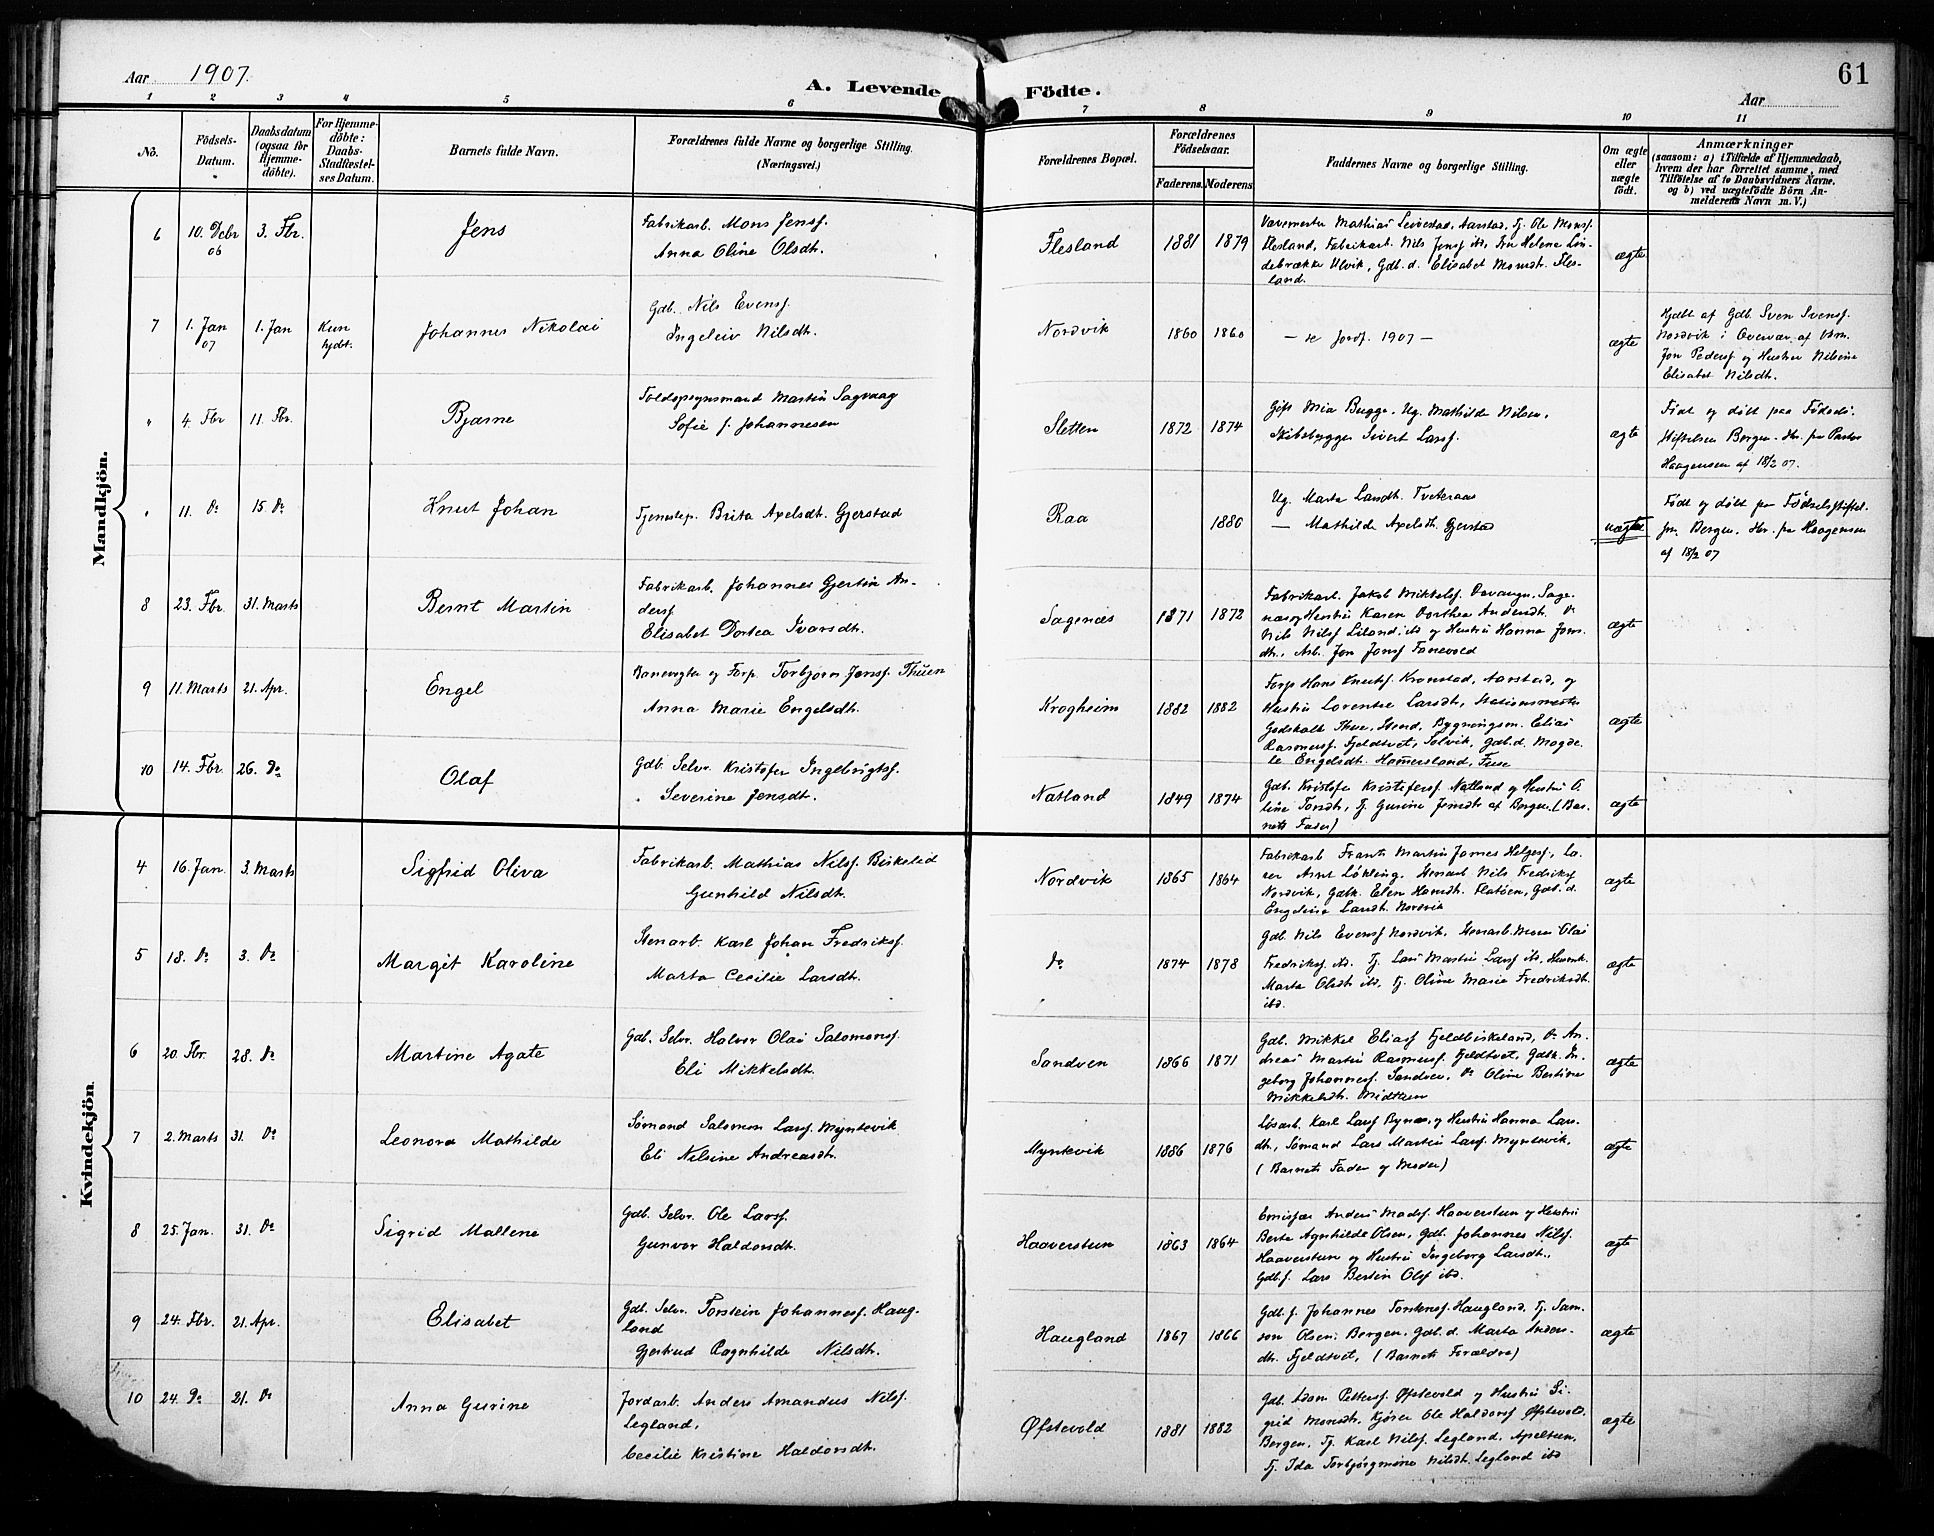 Aar 1907.
A. Levende Födte.
Aar
61
1 2 3 4 5 6 7 8 9 10 11
No.
Födsels-Datum.
Daabsdatum (ogsaa for Hjemme-döbte).
For Hjemme-döbte: Daabs-Stadfæstel-ses Datum.
Barnets fulde Navn.
Forældrenes fulde Navne og borgerlige Stilling. (Næringsvei.)
Forældrenes Bopæl.
Forældrenes Födselsaar.
Faderens. Moderens.
Faddernes Navne og borgerlige Stilling.
Om ægte eller uægte födt.
Anmærkninger
(saasom: a) i Tilfælde af Hjemmedaab, hvem der har forrettet samme, med Tilföielse af to Daabsvidners Navne, og b) ved uægtefödte Börn An-melderens Navn m. V.)
Mandkjön.
6 10. Debr 06 3. Fbr. Jens
Fabrikarb. Mons Jensf.
Anna Oline Olsdt.
Flesland 1881 1879
Mathias Aarstad, Tj. Ole Monsf.
Flesland, Fabrikarb. Nils Jensf. ibd, Helene Lin-
debrække Ulvik, Gdb. d. Elisabet Monsdt. Fles-
land.
ægte
7 1. Jan 07 1. Jan Kun hjdt. Johannes Nikolai
Gdb. Nils Evensf.
Ingeleiv Nilsdt.
Nordvik 1860 1860
— se Jordf. 1907 —
ægte
Hjdbt af Gdb Sven Svensf.
Nordvik i Overvær af
Jon Pedersf og Hustru Nilsine
Elisabet Nilsdt.
" 4. Fbr 11. Fbr. Bjarne
Martin Sagvaag
Sofie f. Johannesen
Sletten 1872 1874
Gift Mia Bugge, Ug. Mathilde Nilsen,
Skibsbygger Sivert Larsf.
ægte
Født og døbt paa Fødsels-
stiftelsen Bergen.
Haagensen af 18/2 07.
" 11. Do 15. Do Knut Johan
Tjenestep. Brita Axelsdt. Gjerstad
Raa 1886
Ug. Marta Larsdt. Tveteraas
— Mathilde Axelsdt. Gjerstad
uægte
Født og døbt paa Fødselsstiftel-
sen Bergen. Haagensen
af 18/2 07
8 23. Fbr. 31. Marts Bernt Martin
Fabrikarb. Johannes Gjertin An-
dersf
Elisabet Dortea Ivarsdt.
Sagenæs 1871 1872
Fabrikarb. Jakob Mikkelsf. Sage-
næs og Hustru Karen Dorthea Andersdt. Do
Nils Nilsf Liland, ibd og Hustru Hanna Jons-
dt., Arb. Jon Jonsf Fanevold
ægte
9 11. Marts 21. Apr. Engel
Banevogter og Forp. Torbjørn Jensf. Thuen
Anna Marie Engelsdt.
Krogheim 1882 1882
Forp Hans Knutsf. Kronstad, Aarstad, og
Hustru Lorentse Larsdt, Stationsmester
Godskalk Thue, Stend, Bygningsm. Elias
Rasmusf. Fjeldtvet, Solvik, Gdb. d. Magde-
le Engelsdt. Hamersland, Fuse
ægte
10 14. Fbr. 26. Do Olaf
Gdb. Selvr. Kristofer Ingebrigtsf.
Severine Jensdt.
Natland 1849 1874
Gdb. Kristofer Kristofersf. Natland og Hustru O-
line Torsdt, Tj. Gurine Jensdt af Bergen. (Bar-
nets Fader)
ægte
Kvindekjön.
4 16. Jan. 3. Marts Sigfrid Oliva
Fabrikarb. Mathias Nilsf Birkelid
Gunhild Nilsdt.
Nordvik 1865 1864
Fabrikarb Frants Martin James Helgesf.,
Arnt Løkling, Stenarb. Nils Fredriksf
Nordvik, Gdbk. Elen Hansdt. Flatøen, Gdb. d.
Engeline Larsdt. Nordvik
ægte
5 18. Do 3. Do Margit Karoline
Stenarb. Karl Johan Fredriksf.
Marta Cecilie Larsdt.
Do 1874 1878
Gdb. Nils Evensf Nordvik, Stenarb. Mons Olai
Fredriksf. ibd. Tj. Lars Martin Larsf ibd,
Marta Olsdt ibd, Tj. Oline Marie Fredriksdt.
ibd.
ægte
6 20. Fbr. 28. Do Martine Agate
Gdb. Selv. Halvor Olai Salomonsf.
Eli Mikkelsdt.
Sandven 1866 1871
Gdb. Mikkel Eliasf Fjeldbirkeland, Do An-
dreas Martin Rasmusf. Fjeldtvet, Gdbk. In-
geborg Johannesf. Sandven, Do Oline Bertine
Mikkelsdt. Midttun
ægte
7 2. Marts 31. Do Leonora Mathilde
Sømand Salomon Larsf. Myntevik
Eli Nilsine Andreasdt.
Myntevik 1886 1876
Løsarb. Karl Larsf Bynæs og Hustru Hanna Lars-
dt., Sømand Lars Martin Larsf. Myntevik,
(Barnets Fader og Moder)
ægte
8 25. Jan. 31. Do Sigrid Mallene
Gdb. Selv. Ole Larsf.
Gunvor Haldorsdt.
Haaverstun 1863 1864
Emissær Anders Madsf. Haaverstun og Hustru
Berta Agnthilde Olsen, Gdb. Johannes Nilsf.
Haaverstun og Hustru Ingeborg Larsdt.,
Gdb. f. Lars Bertin Olsf ibd.
ægte
9 24. Fbr. 21. Apr. Elisabet
Gdb. Selv. Torstein Johannesf. Haug-
land
Gjertrud Ragnhilde Nilsdt.
Haugland 1867 1866
Gdb. f. Johannes Torstensf. Haugland, Tj. Sam-
son Olsen, Bergen, Gdb. d. Marta Anders-
dt. Fjeldtvet, (Barnets Forældre)
ægte
10 24. Do 21. Do Anna Gurine
Jordarb. Anders Amandus Nilsf.
Legland,
Cecilie Kristine Haldorsdt.
Øfstevold 1881 1882
Gdb. Adam Pettersf. Øfstevold og Hustru Si-
grid Monsdt. Kjører Ole Haldorsf Øfstevold,
Bergen, Tj. Karl Nilsf. Legland, Apeltun,
Tj. Ida Torbjørgmine Nilsdt. Legland ibd
ægte